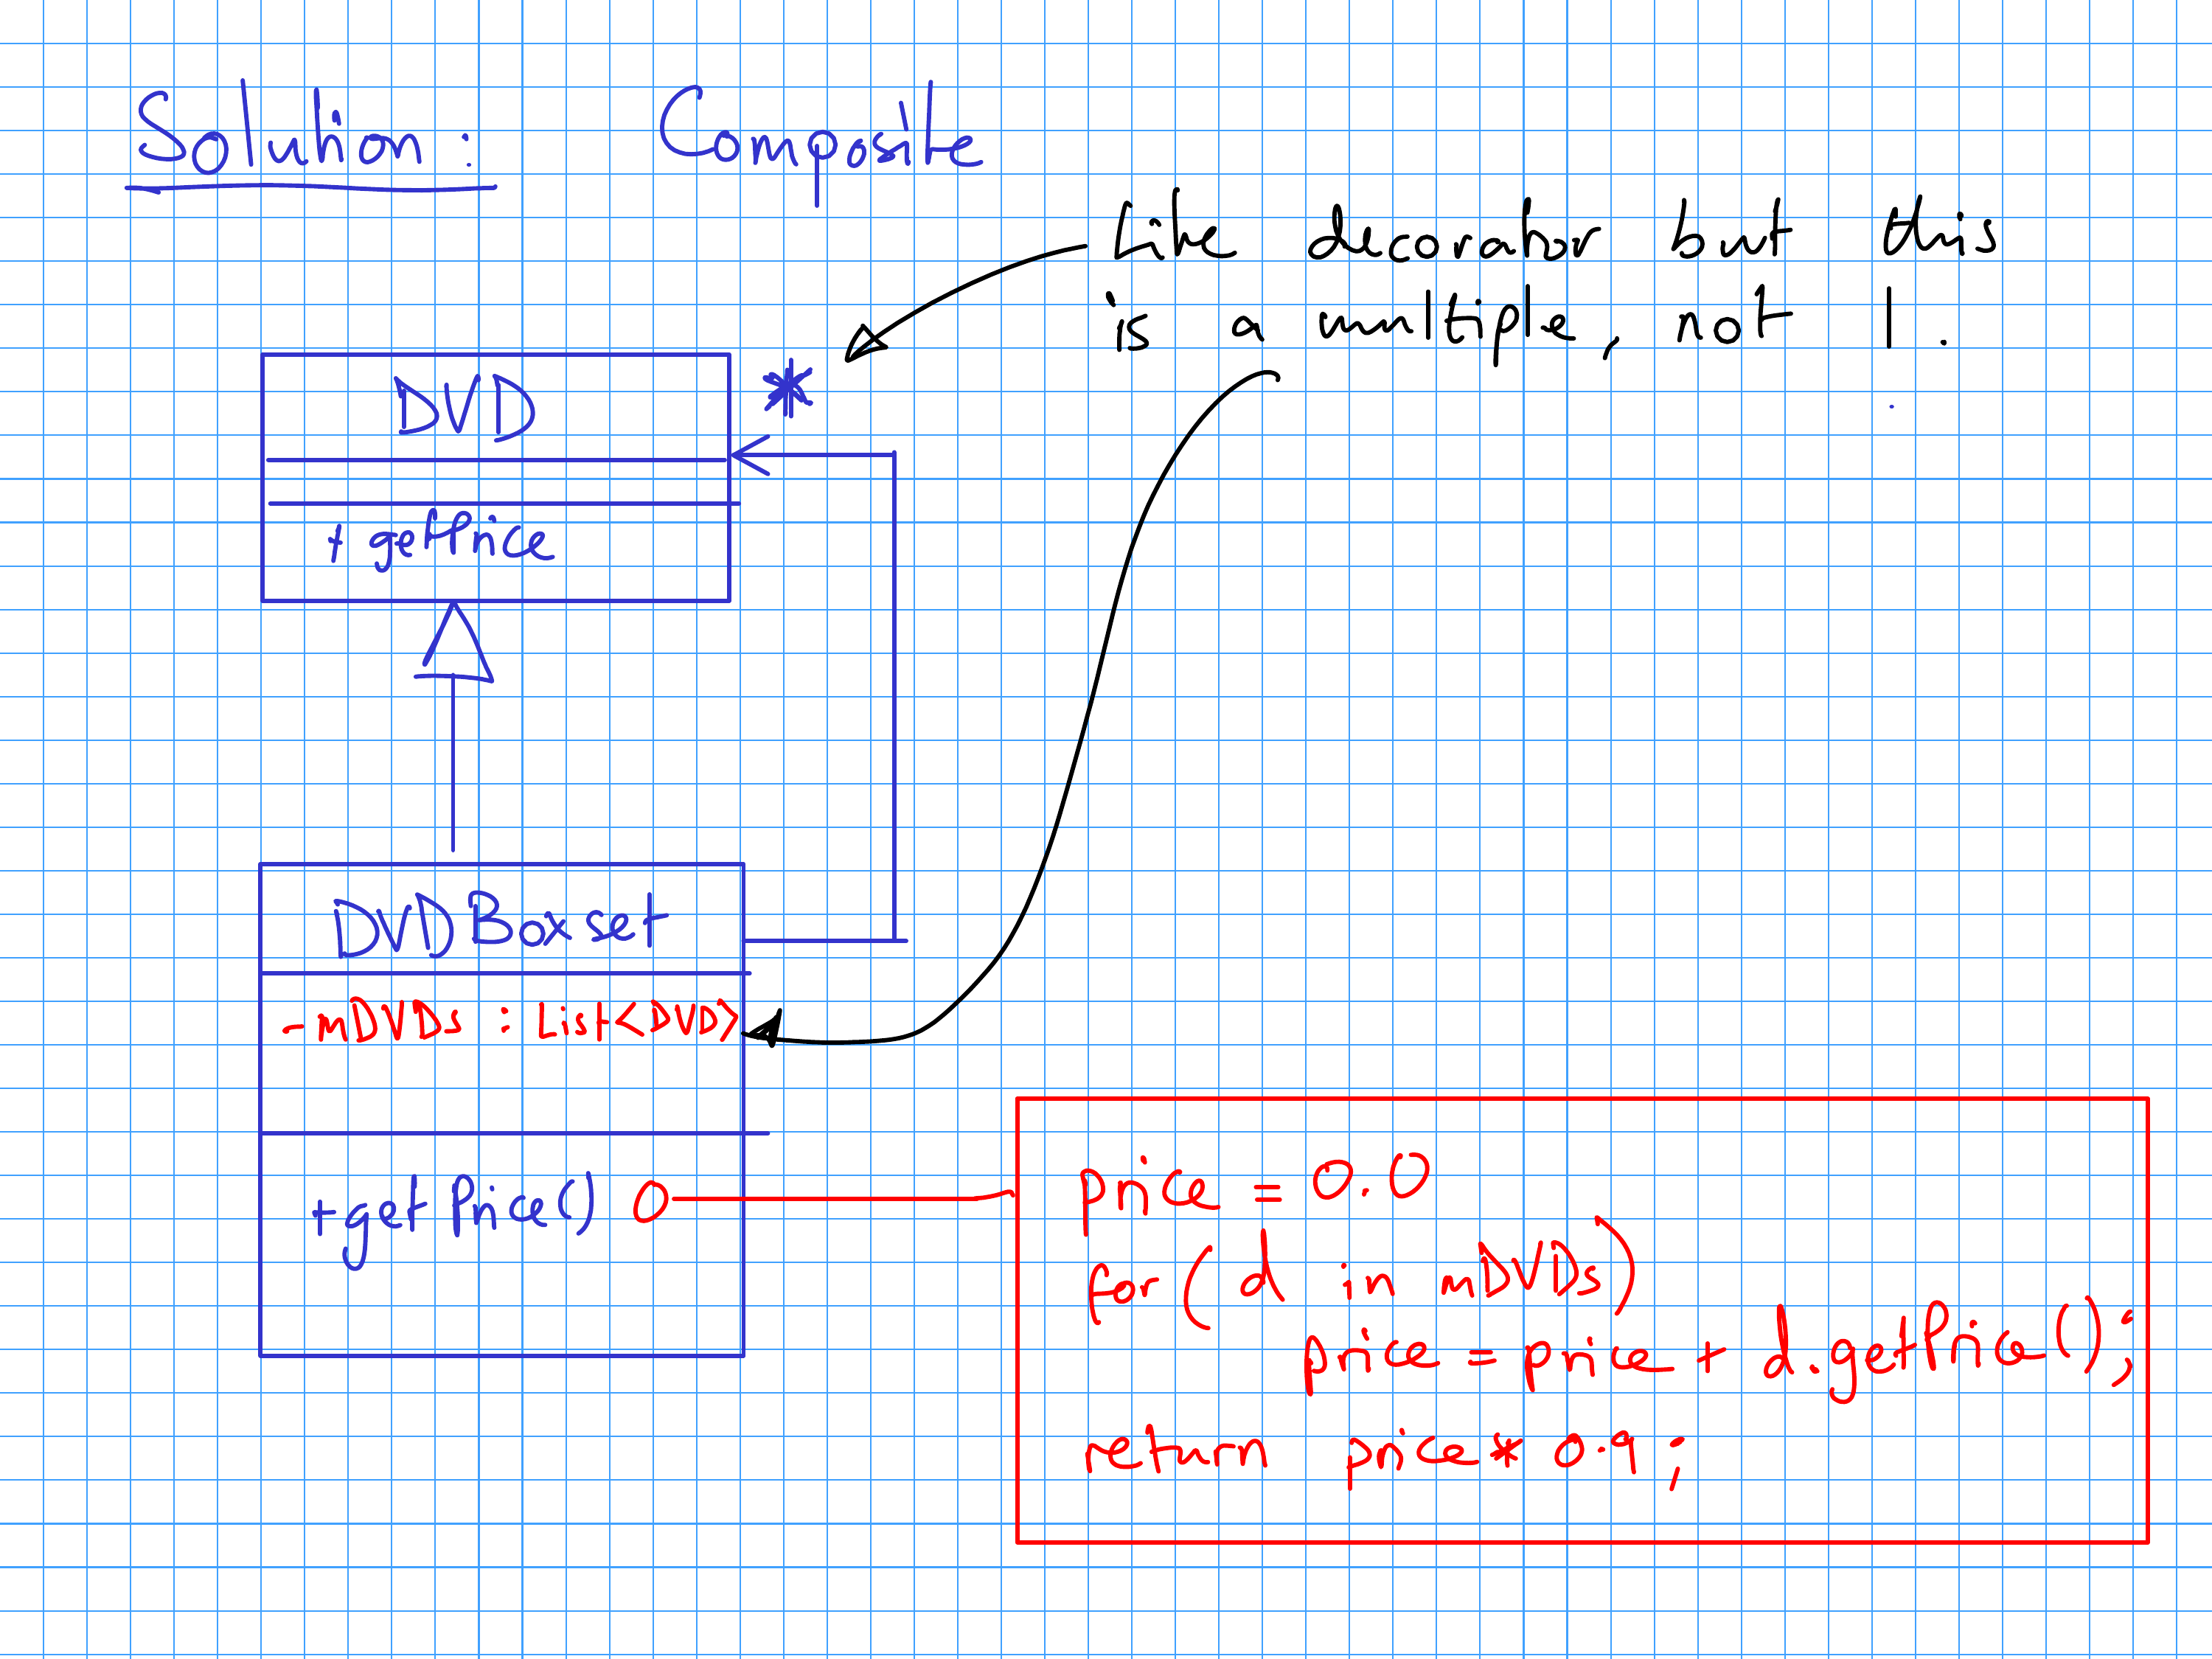 Solution: Composite
Like decorator but this
is a multiple, not 1.
*
DVD
+ getPrice
DVDBoxset
- mDVDs : List<DVD>
+getPrice()
price = 0.0
for(d in mDVDs)
price = price + d.getPrice();
return price * 0.9;